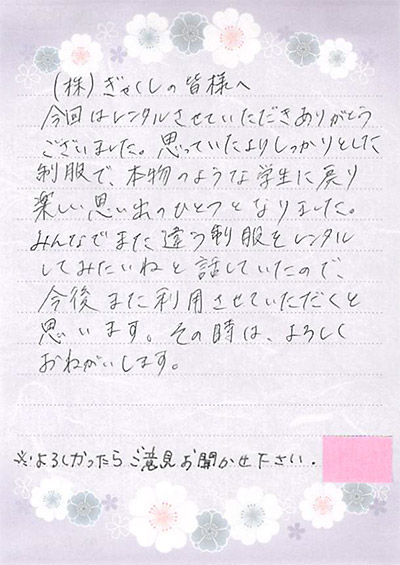 (株)ぎゃくしの皆様へ
今回はレンタルさせていただきありがとう
ございました。思っていたよりしっかりとした
制服で、本物のような学生に戻り
楽しい思い出のひとつとなりました。
みんなでまた違う制服をレンタル
してみたいねと話していたので、
今後また利用させていただくと
思います。その時は、よろしく
おねがいします。
※よろしかったらご意見お聞かせ下さい.